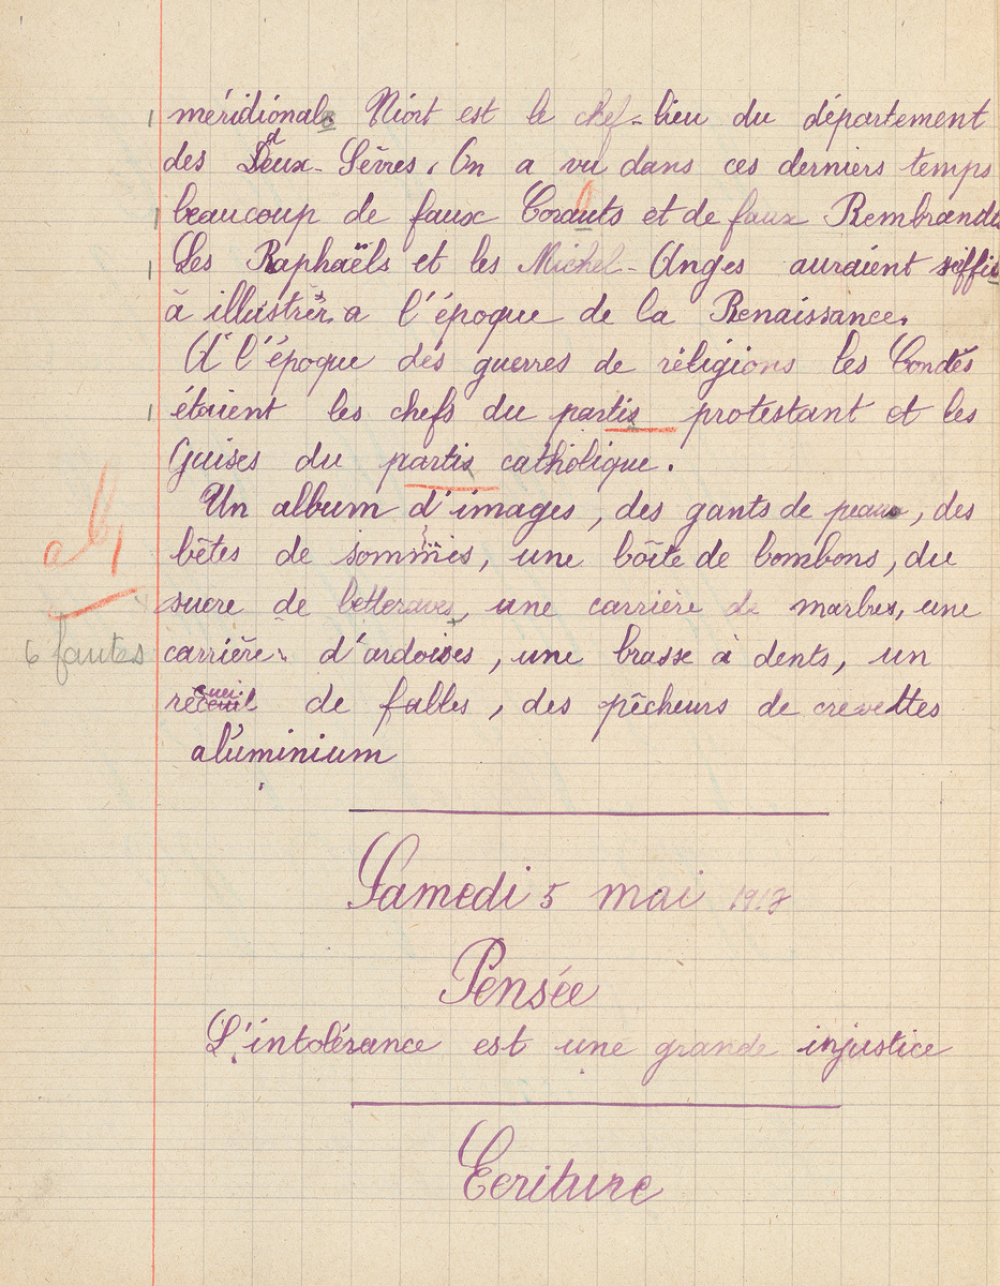 méridional. Niort est le chef-lieu du département
des Deux-Sèvres. On a vu dans ces derniers temps
beaucoup de faux et de faux Rembrandts
Les Raphaëls et les Michel-Anges auraient suffit
à illustrer a l'époque de la Renaissance.
A l'époque des guerres de réligions les Condés
étaient les chefs du partis protestant et les
Guises du partis catholique.
Un album d'images, des gants de peau, des
ab
bêtes de sommes, une boîte de bombons, du
sucre de betteraves, une carrière de marbres, une
6 fautes carrière d'ardoises, une brasse à dents, un
recueil de falles, des pêcheurs de crevettes
aluminium
Samedi 5 mai 1917
Pensée
L'intolérance est une grande injustice
Ecriture